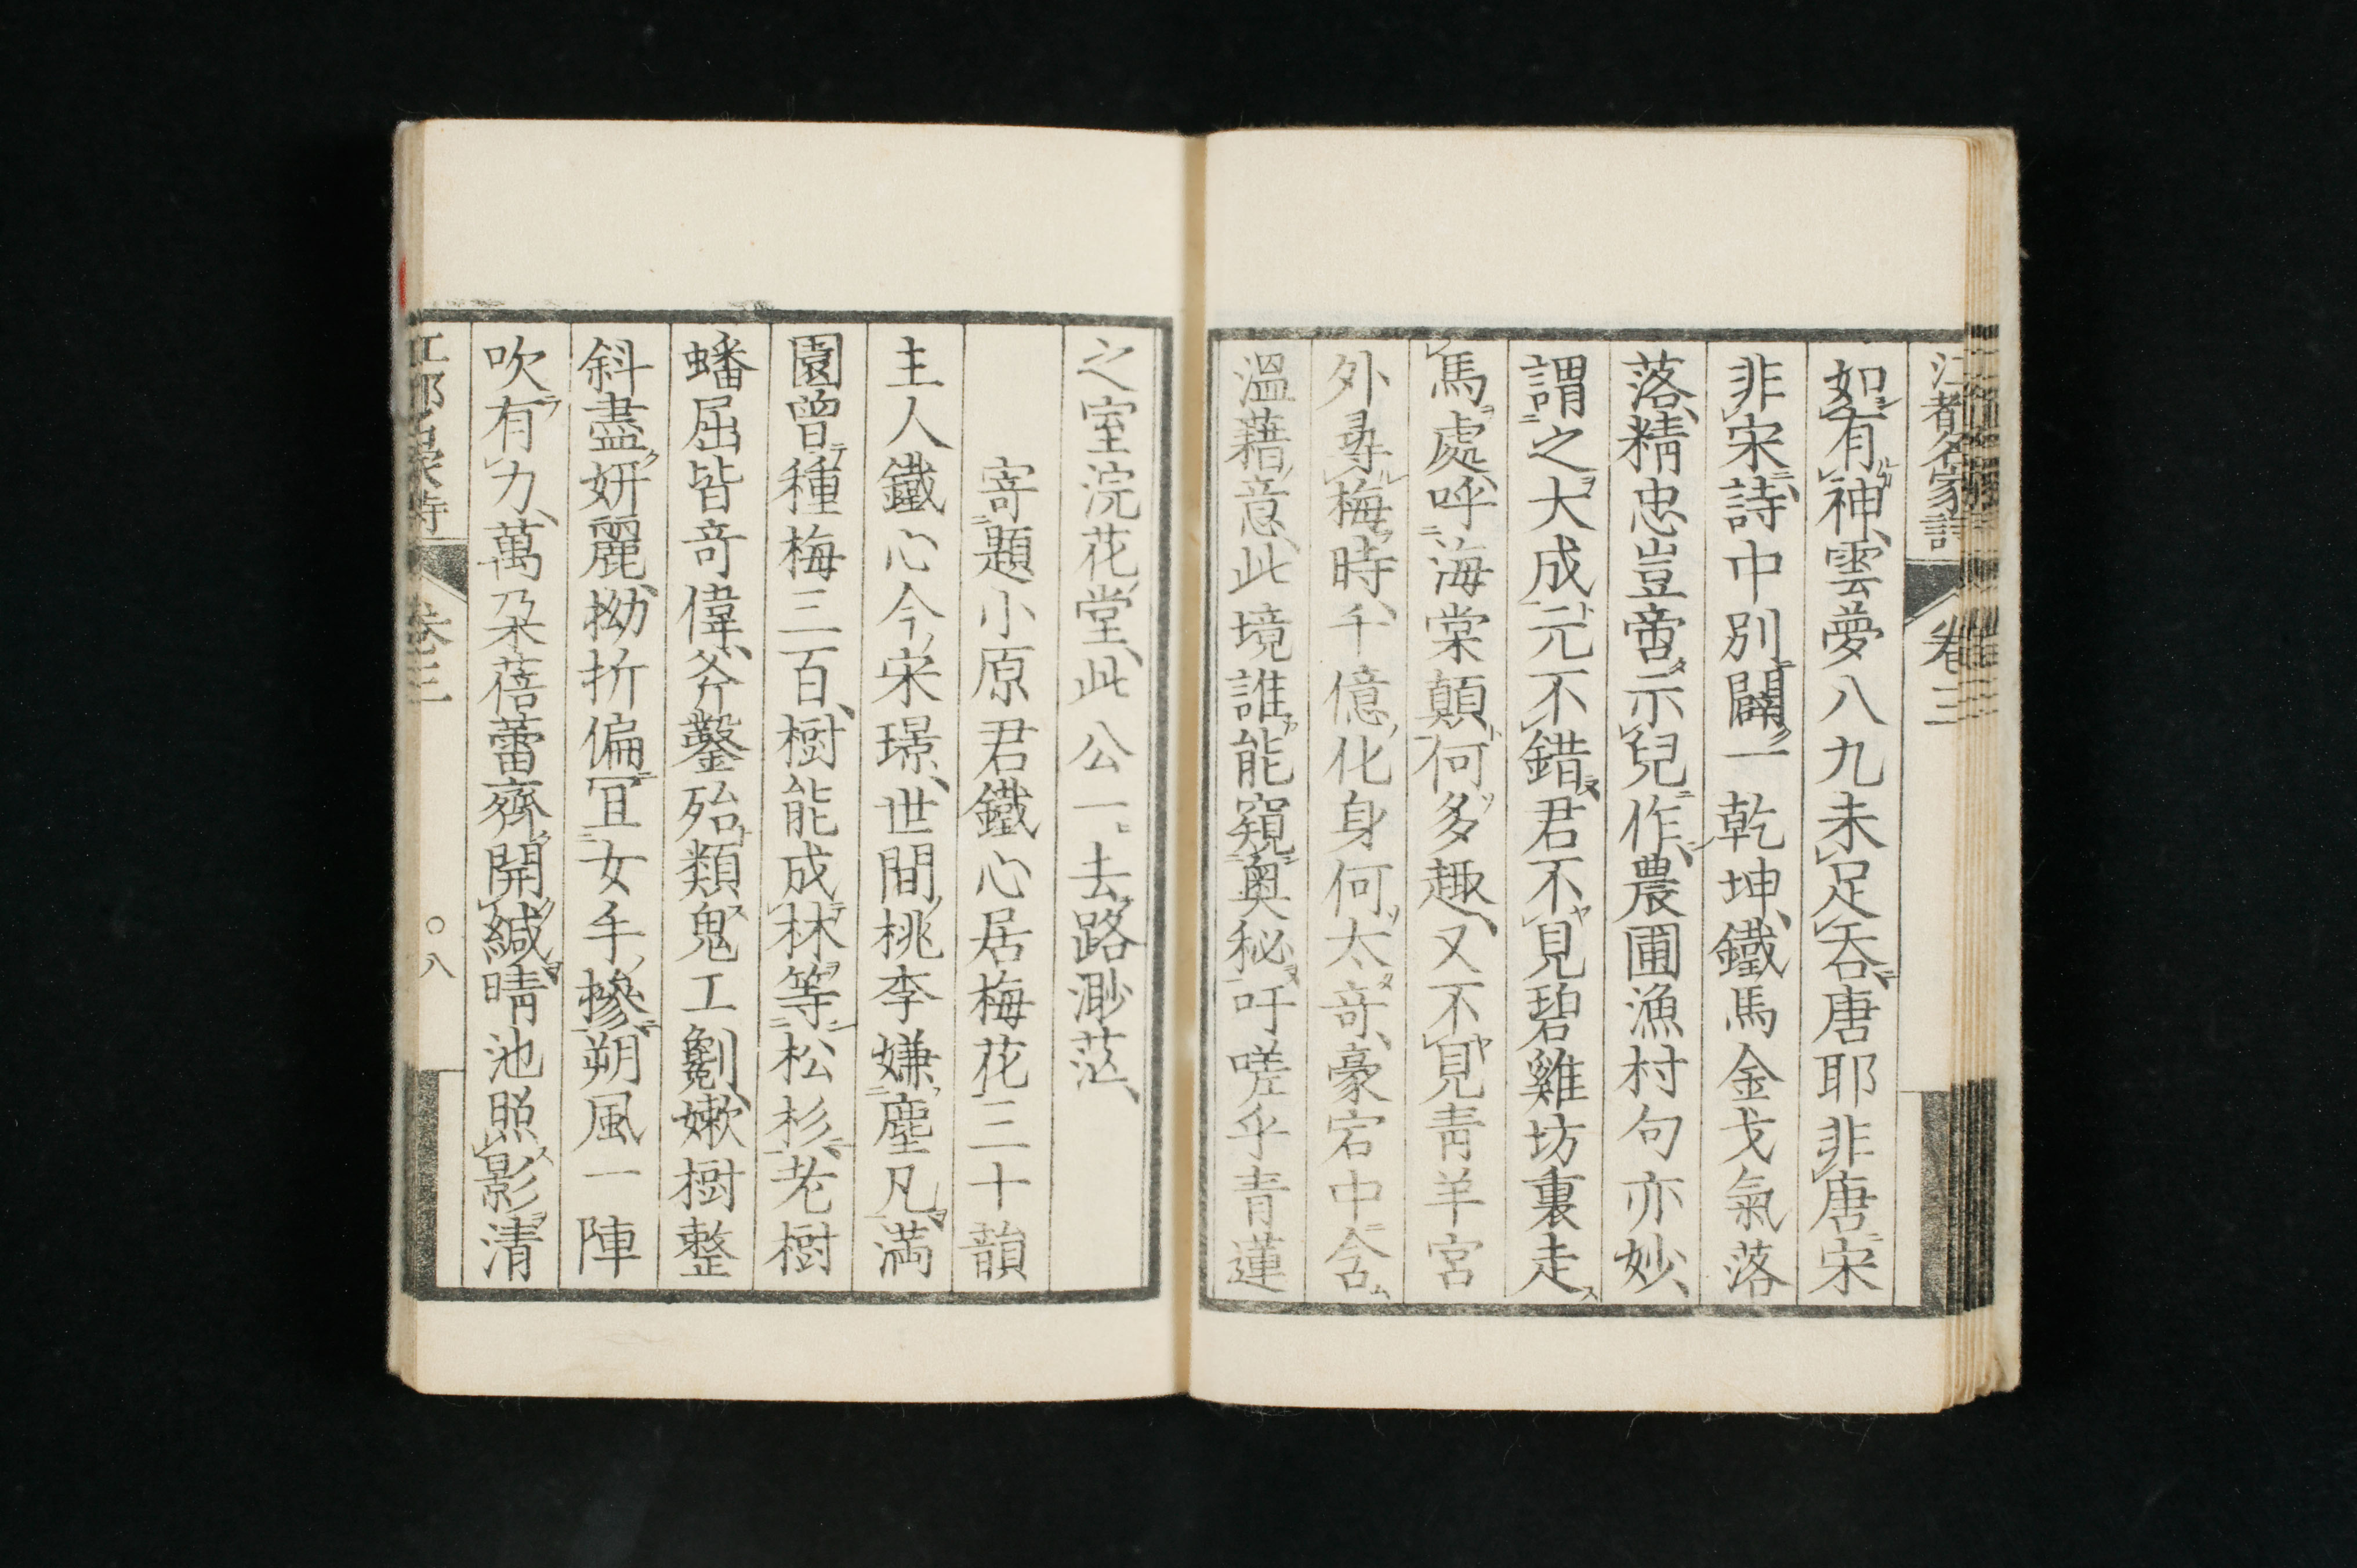 江都名家詩 卷三
如有神、雲夢八九未足吞唐耶非唐宋
非宋、詩中別闢一乾坤、鐵馬金戈氣落
落、精忠豈啻示兒作、農圃漁村句亦妙、
謂之大成元不錯君不見碧雞坊裏走
馬處、呼海棠顛何多趣、又不見青羊宮
外尋梅時、千億化身何太奇、豪宕中含
溫藉意、此境誰能窺奧秘吁嗟乎青蓮
之室浣花堂、此公一去路渺茫、
寄題小原君鐵心居梅花三十韻
主人鐵心今宋璟、世間桃李嫌塵凡滿
園曾種梅三百、樹能成林等松杉、老樹
蟠屈皆奇偉、斧鑿殆類鬼工劖、嫩樹整
斜盡妍麗、拗折偏宜女手摻朔風一陣
吹有力、萬朶蓓蕾齊開緘晴池照影清
江都名家詩 卷三 ○八